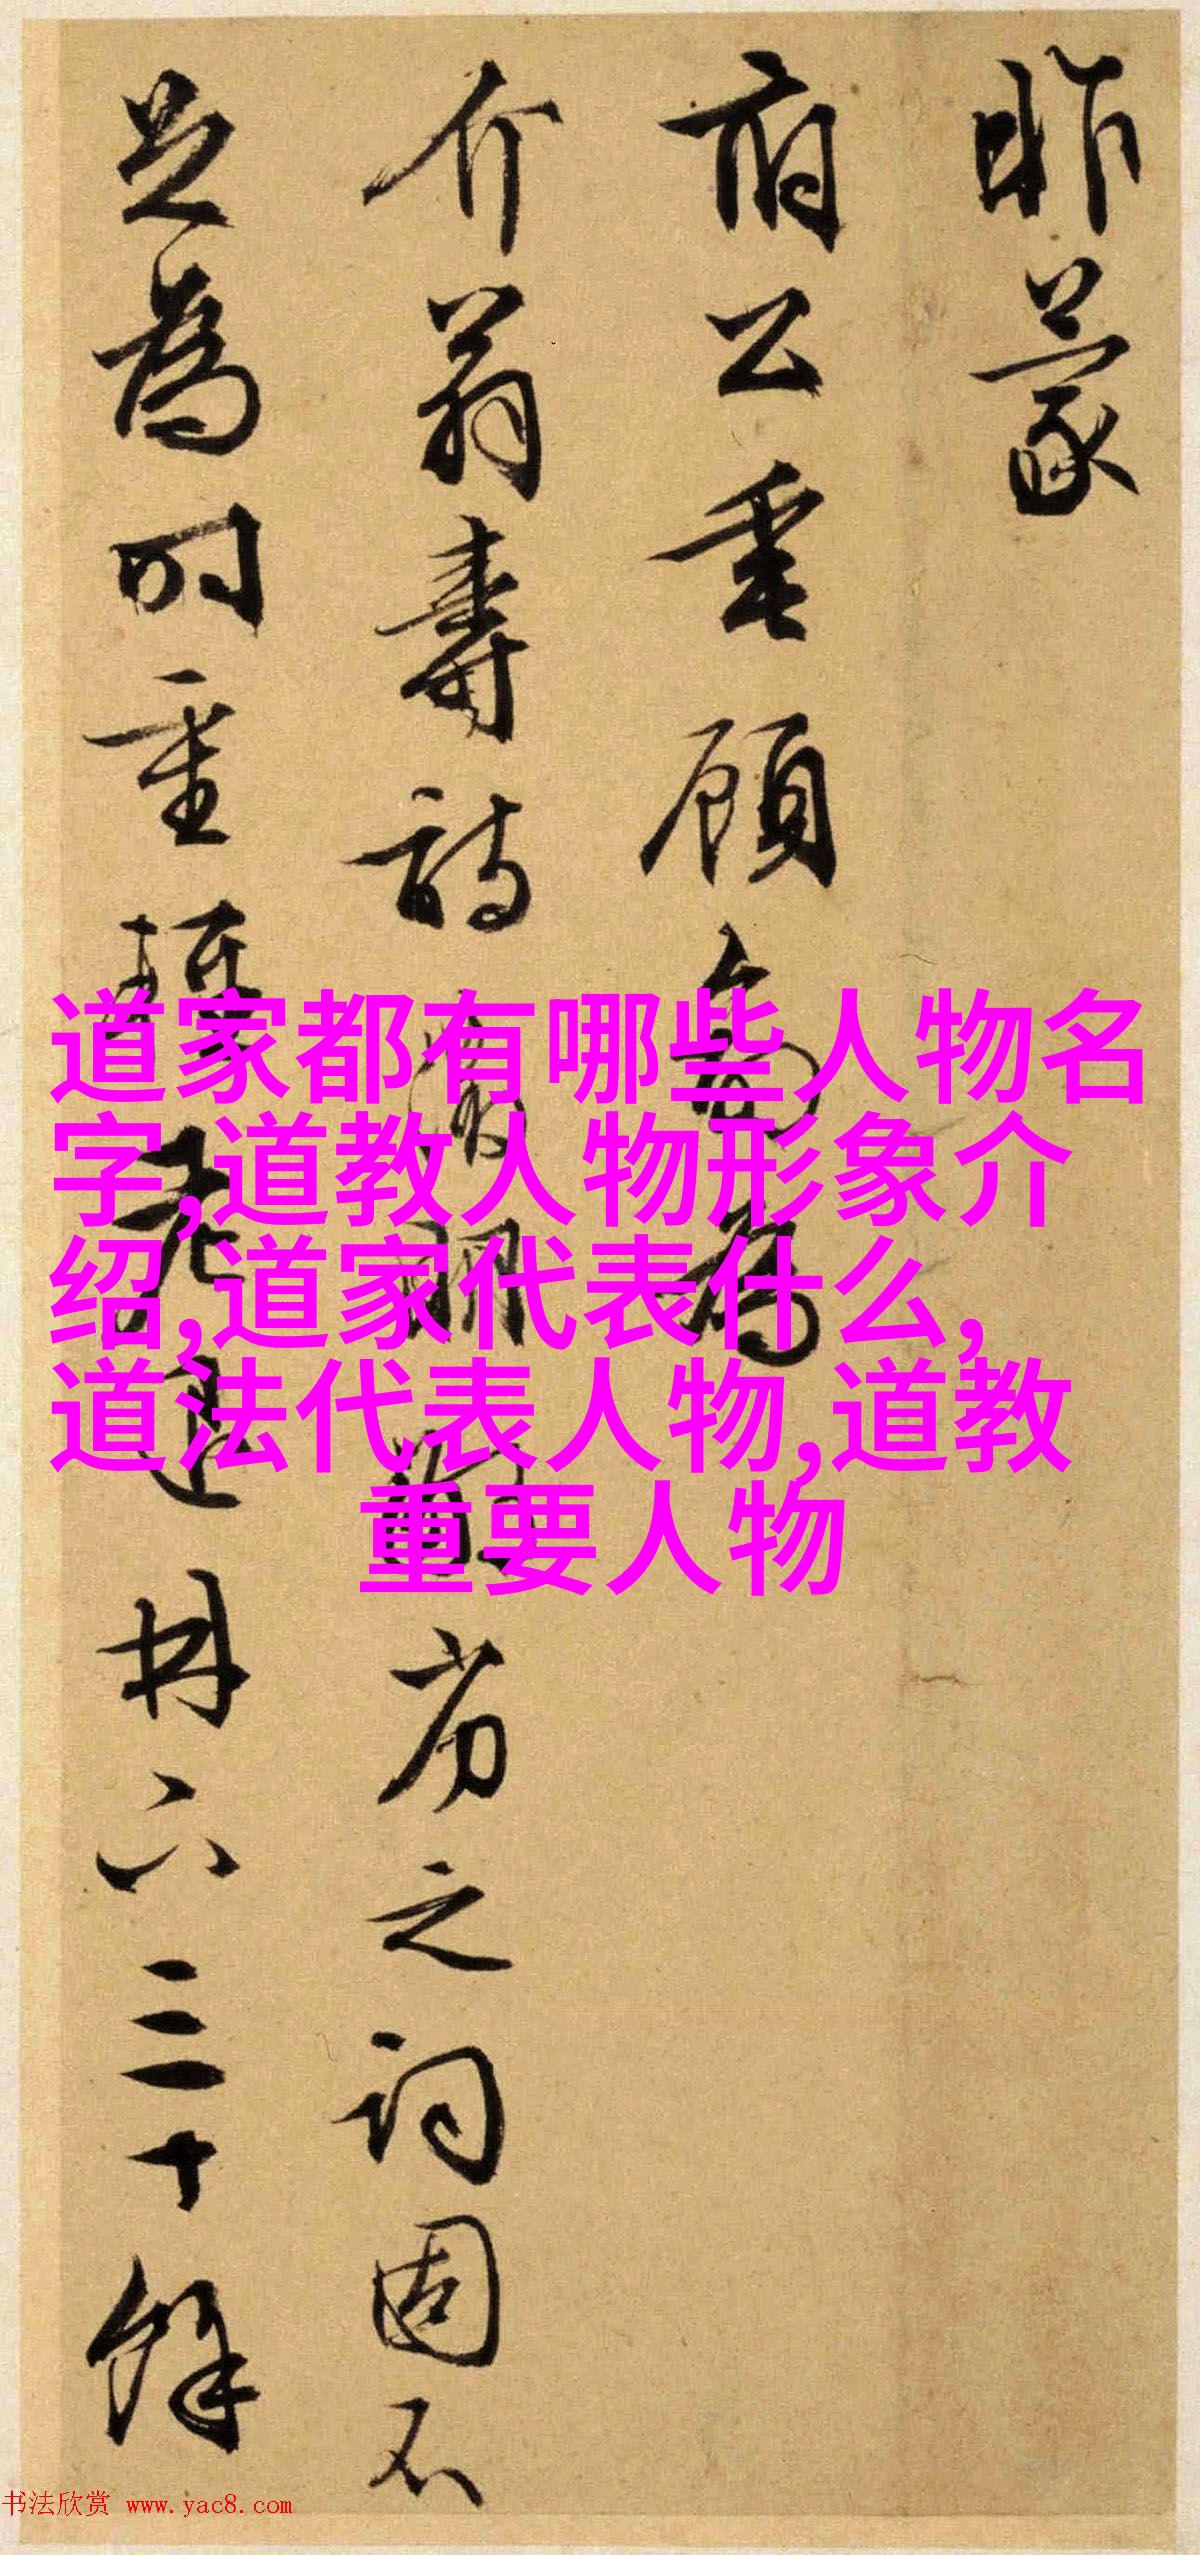 昨蒙
府公垂顧勉為
介翁壽詩劣之詞固不
足為時重輕老六三十餘
道家都有哪些人物名
字,道教人物形象介
绍,道家代表什么,
道法代表人物,道教
重要人物
书法欣赏 www.yac8.com